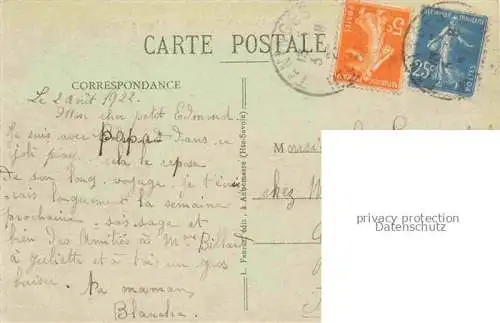 CARTE POSTALE
CORRESPONDANCE
Le 2 août 1922.
Mon cher petit Edmond
Je suis avec papa dans ce
joli pays cela le repose
de son long voyage. je t'écri
-rais longuement la semaine
prochaine. sois sage et
bien des Amitiés à Mme
à Juliette et à toi un gros
baiser. ta maman,
Blanche.
L. Fanras, édit., à Annemasse (Hte-Savoie)
5c
25c
Monsie
chez M
privacy protection
Datenschutz